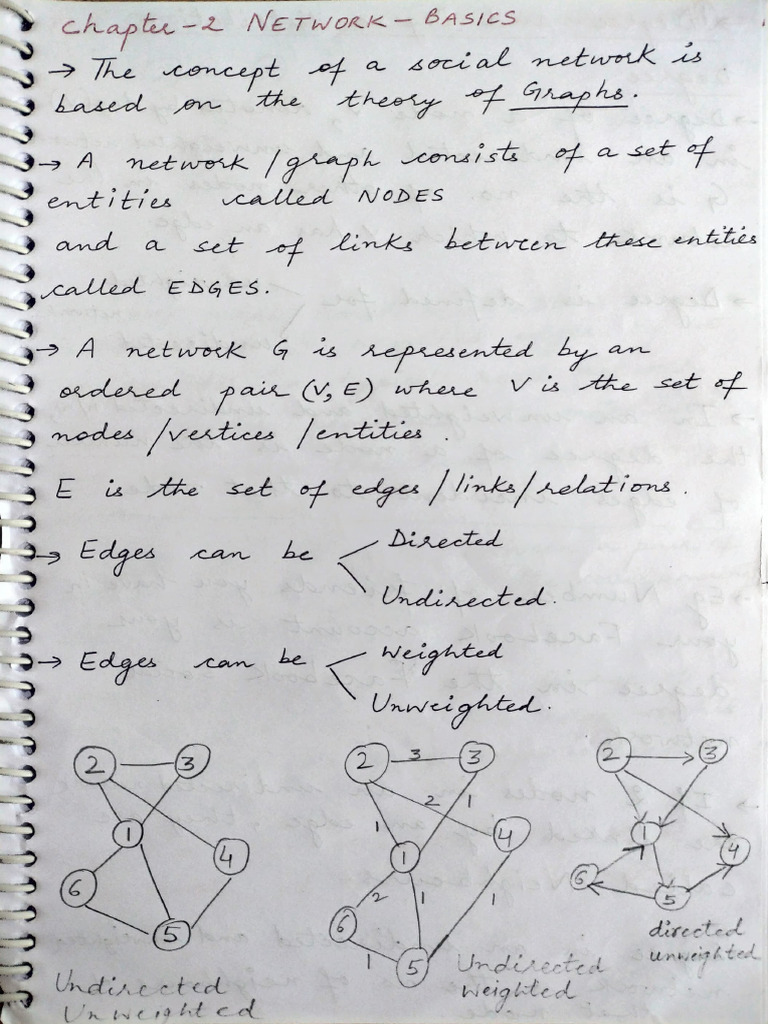 Chapter-2 NETWORK-BASICS
→ The concept of a social network is
based on the theory of Graphs.
→ A network/graph consists of a set of
entities called NODES
and a set of links between these entities
called EDGES.
→ A network G is represented by an
ordered pair (V, E) where V is the set of
nodes/vertices/entities.
E is the set of edges/links/relations.
→ Edges can be Directed
Undirected.
→ Edges can be Weighted
Unweighted.
2 3
1
4
6
5
Undirected
Unweighted
2 3 3
2 1
1
4
1
2 1 1
6
1
5
Undirected
weighted
2 3
1
4
6
5
directed
unweighted